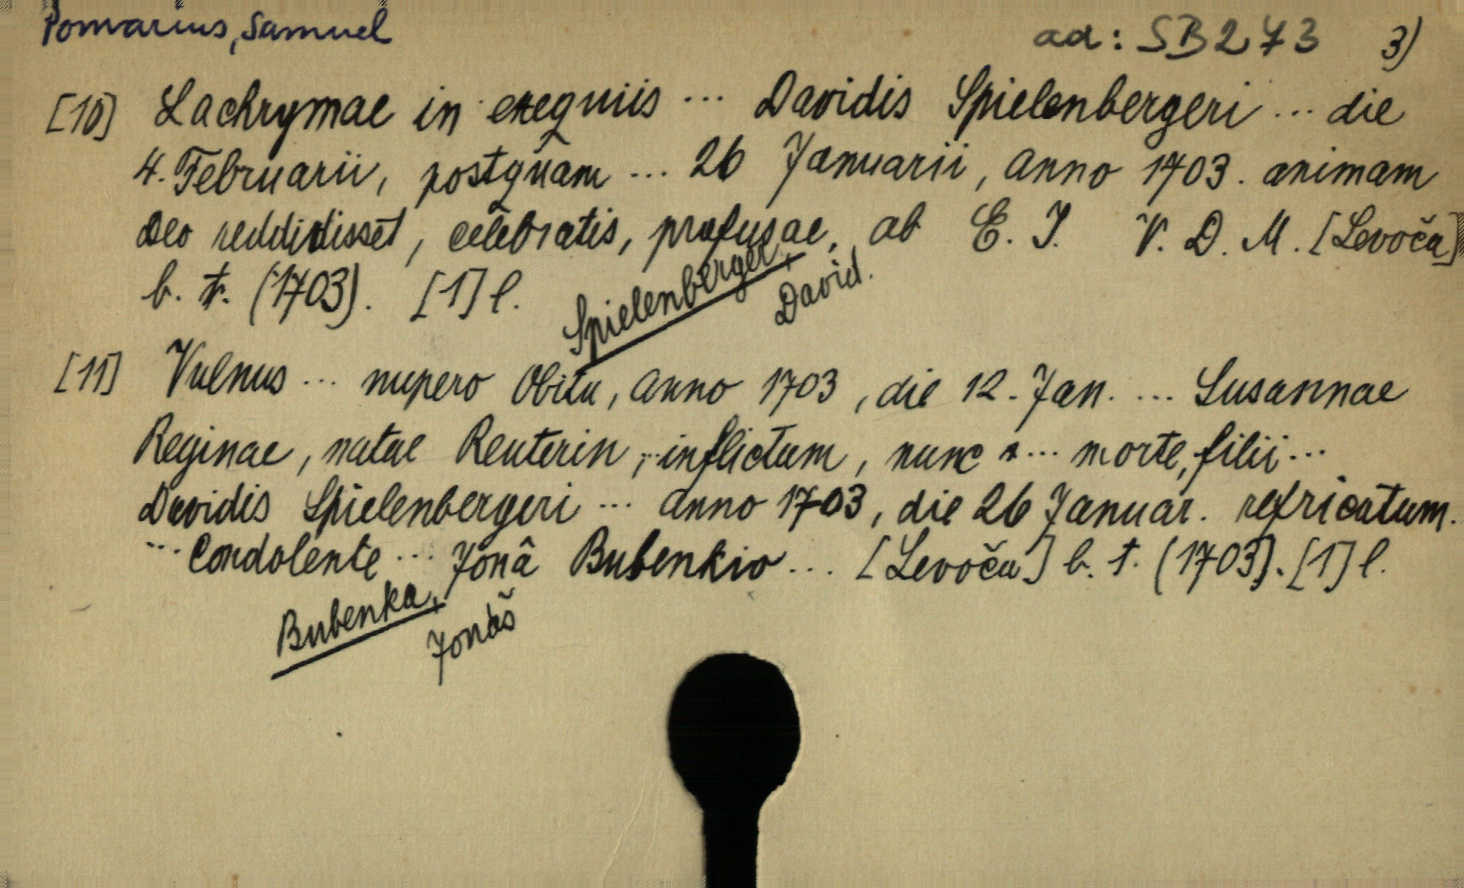 Pomarius, Samuel
ad: SB273 3)
[10] Lachrymae in exequiis ... Davidis Spielenbergeri ... die
4. Februarii, postquam ... 26 Januarii, anno 1703. animam
Deo reddidisset, celebratis, profusae, ab E. J. V. D. M. [Levoča]
b. t. (1703). [1] l.
Spielenberger,
David.
[11] Vulnus ... nupero Obitu, anno 1703, die 12. Jan. ... Susannae
Reginae, natae Reuterin, ... inflictum, nunc ... morte, filii ...
Davidis Spielenbergeri ... anno 1703, die 26 Januar. refricatum.
... Condolente ... Jonâ Bubenkio ... [Levoča] b. t. (1703). [1] l.
Bubenka,
Jonáš